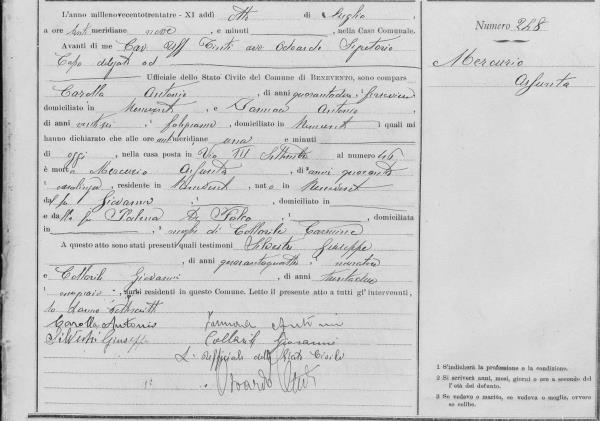 L'anno millenovecentotrentatre - XI addì otto di Luglio,
a ore antimeridiane nove e minuti , nella Casa Comunale.
Avanti di me Cav. Uff. Tinti avv. Odoardo Segretario
Capo delegato
Ufficiale dello Stato Civile del Comune di BENEVENTO, sono comparsi
Carolla Antonio, di anni
domiciliato in Benevento, e Antonio,
di anni ventisei, falegname, domiciliato in Benevento i quali mi
hanno dichiarato che alle ore antimeridiane una e minuti
di oggi, nella casa posta in Via III Settembre al numero 46
è morta Mercurio Assunta di anni quaranta
casalinga, residente in Benevento, nata in Benevento
da fu Giovanni, domiciliato in
e dalla fu Filomena , domiciliata
in , moglie di Collarile Carmine
A questo atto sono stati presenti quali testimoni Silvestri Giuseppe
, di anni quarantaquattro, muratore
e Collarile Giovanni, di anni trentadue
, ambi residenti in questo Comune. Letto il presente atto a tutti gl' intervenuti,
lo hanno sottoscritto
Carolla Antonio Antonio
Silvestri Giuseppe Collarile Giovanni
L'Ufficiale dello Stato Civile
Odoardo Tinti
Numero 248
Mercurio
Assunta
1 S'indicherà la professione o la condizione.
2 Si scriverà anni, mesi, giorni o ore a seconda del
l'età del defunto.
3 Se vedovo o marito, se vedova o moglie, ovvero
se celibe.